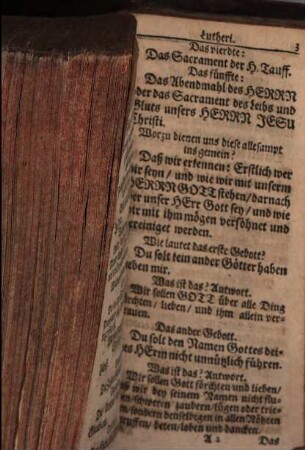 Lutheri. 3
Das vierdte:
Das Sacrament der H. Tauff.
Das fünffte:
Das Abendmahl des HERRN
der das Sacrament des Leibs und
Bluts unsers HERRN JESU
Christi.
Worzu dienen uns diese allesampt
ins gemein?
Daß wir erkennen: Erstlich wer
wir seyn / und wie wir mit unserm
HERRN GOTT stehen / darnach
wer unser HErr Gott sey / und wie
wir mit ihm mögen versöhnet und
vereiniget werden.
Wie lautet das erste Gebott?
Du solt kein ander Götter haben
neben mir.
Was ist das? Antwort.
Wir sollen GOTT über alle Ding
förchten / lieben / und ihm allein ver-
trauen.
Das ander Gebott.
Du solt den Namen Gottes dei-
nes HErrn nicht unnützlich führen.
Was ist das? Antwort.
Wir sollen Gott förchten und lieben /
daß wir bey seinem Namen nicht flu-
chen / schweren zaubern / lügen oder trie-
gen / sondern denselbigen in allen Nöhten
anruffen / beten / loben und dancken.
A 2 Das